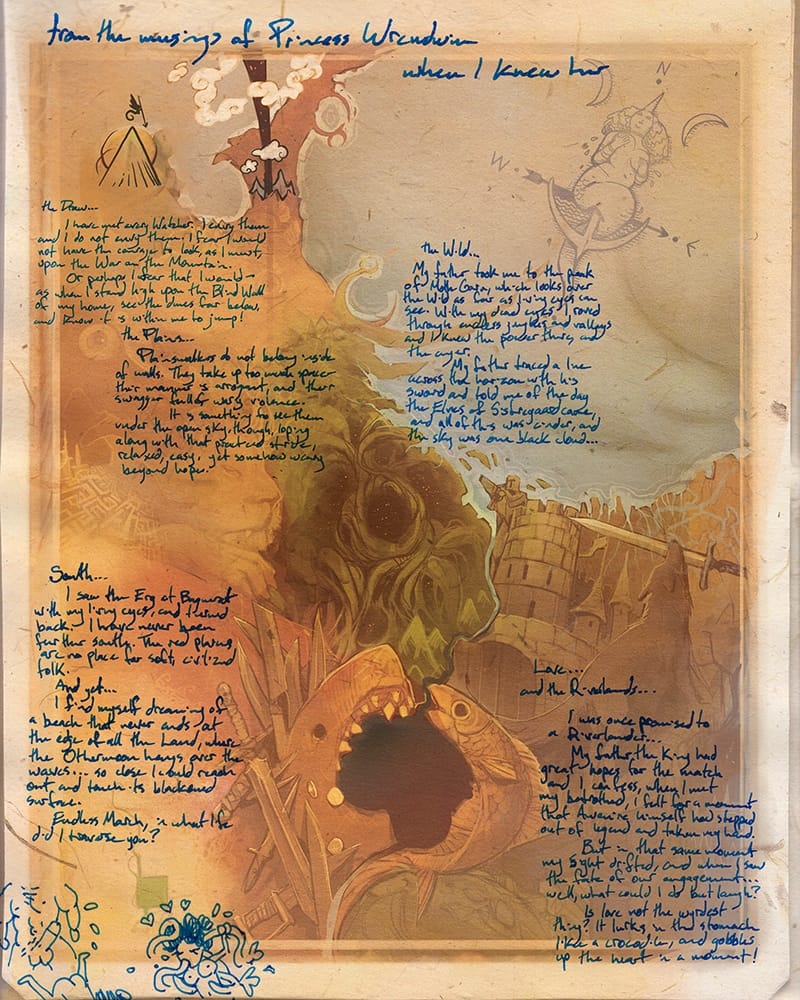 from the musings of Princess
when I knew her
N
W
E
the Draw...
I have met every Watcher. I envy them
and I do not envy them; I fear I would
not have the courage to look, as I must,
upon the War on the Mountain.
Or perhaps I fear that I would –
as when I stand high upon the Blind Wall
of my home, see the dunes far below,
and know it is within me to jump!
the Plains...
Plainswalkers do not belong inside
of walls. They take up too much space;
their manner is arrogant, and their
swagger full of wary violence.
It is something to see them
under the open sky, though, loping
along with that practiced stride,
relaxed, easy, yet somehow wary
beyond hope.
the Wild...
My father took me to the peak
of Moth which looks over
the Wild as far as living eyes can
see. With my dead eyes, I roved
through endless jungles and valleys
and I knew the power there, and
the anger.
My father traced a line
across the horizon with his
sword and told me of the day
the Elves of came,
and all of this was cinder, and
the sky was one black cloud...
South...
I saw the Erg at
with my living eyes, and turned
back. I have never been
further south. The red plains
are no place for soft, civilized
folk.
And yet...
I find myself dreaming of
a beach that never ends at
the edge of all the Land, where
the Othermoon hangs over the
waves... so close I could reach
out and touch its blackened
surface.
Endless March, in what life
did I traverse you?
Love...
and the Riverlands...
I was once promised to
a Riverlander...
My father the King had
great hopes for the match
and I confess, when I met
my betrothed, I felt for a moment
that himself had stepped
out of legend and taken my hand.
But in that same moment
my sight drifted, and when I saw
the fate of our engagement...
well, what could I do but laugh?
Is love not the wyrdest
thing? It lurks in the stomach
like a crocodile, and gobbles
up the heart in a moment!